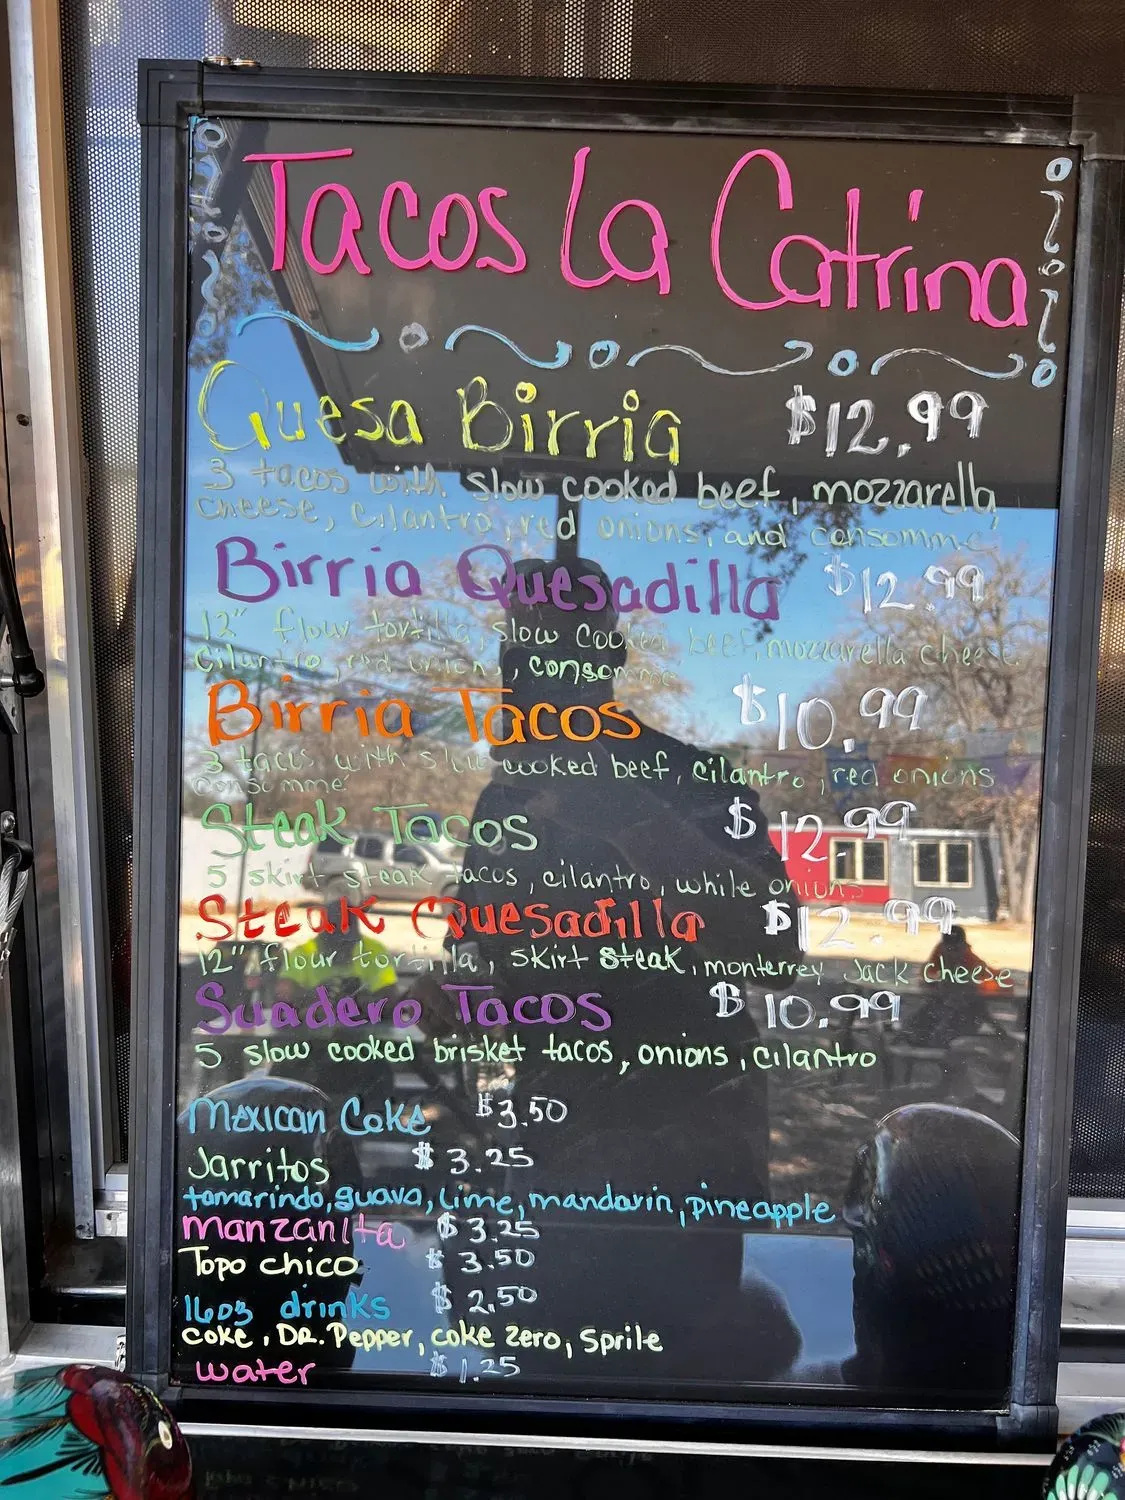 Tacos La Catrina
Quesa Birria $12.99
3 tacos with slow cooked beef, mozzarella
cheese, cilantro, red onions, and consomme
Birria Quesadilla $12.99
12" flour tortilla, slow cooked beef, mozzarella cheese
cilantro, red onions, consomme
Birria Tacos $10.99
3 tacos with slow cooked beef, cilantro, red onions
consommé
Steak Tacos $12.99
5 skirt steak tacos, cilantro, while onions
Steak Quesadilla $12.99
12" flour tortilla, skirt steak, monterrey Jack cheese
Suadero Tacos $10.99
5 slow cooked brisket tacos, onions, cilantro
Mexican Coke $3.50
Jarritos $3.25
tamarindo, guava, lime, mandarin, pineapple
manzanita $3.25
Topo chico $3.50
16oz drinks $2.50
coke, DR. Pepper, coke zero, Sprile
water $1.25